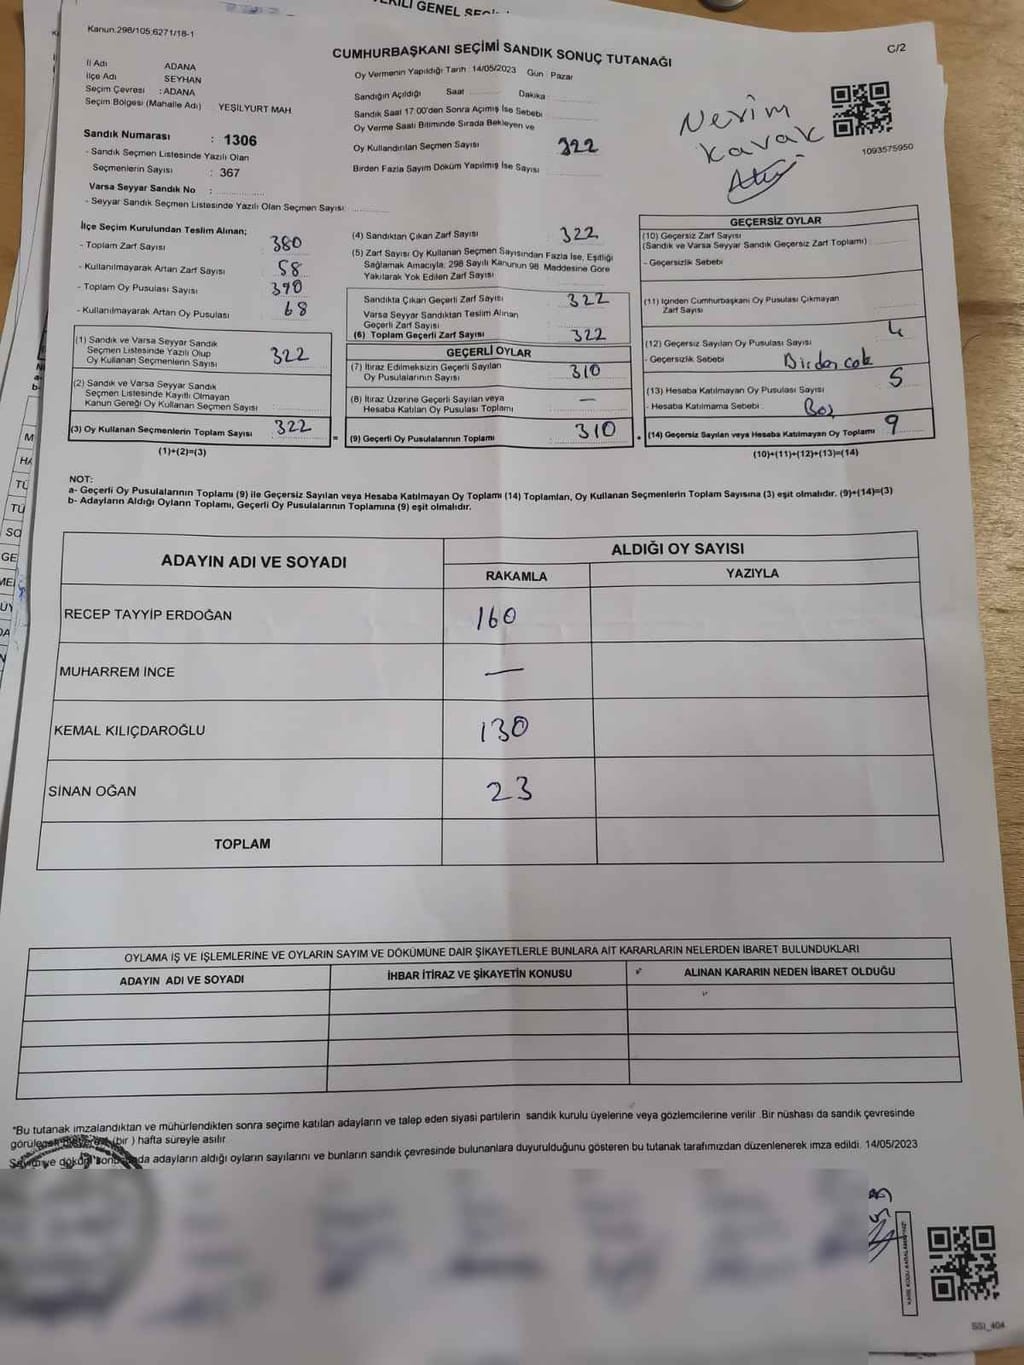 Kanun.298/105;6271/18-1
CUMHURBAŞKANI SEÇİMİ SANDIK SONUÇ TUTANAĞI
C/2
İl Adı ADANA
İlçe Adı SEYHAN
Seçim Çevresi : ADANA
Seçim Bölgesi (Mahalle Adı) YEŞİLYURT MAH
Sandık Numarası : 1306
- Sandık Seçmen Listesinde Yazılı Olan
Seçmenlerin Sayısı : 367
Varsa Seyyar Sandık No :
- Seyyar Sandık Seçmen Listesinde Yazılı Olan Seçmen Sayısı:
Oy Vermenin Yapıldığı Tarih : 14/05/2023 Gün : Pazar
Sandığın Açıldığı Saat Dakika
Sandık Saat 17:00'den Sonra Açımış İse Sebebi
Oy Verme Saati Bitiminde Sırada Bekleyen ve
Oy Kullandırılan Seçmen Sayısı 322
Birden Fazla Sayım Döküm Yapılmış İse Sayısı
Nevim
Kavak
1093575950
İlçe Seçim Kurulundan Teslim Alınan;
- Toplam Zarf Sayısı 380
- Kullanılmayarak Artan Zarf Sayısı 58
- Toplam Oy Pusulası Sayısı 390
- Kullanılmayarak Artan Oy Pusulası 68
(1) Sandık ve Varsa Seyyar Sandık
Seçmen Listesinde Yazılı Olup
Oy Kullanan Seçmenlerin Sayısı 322
(2) Sandık ve Varsa Seyyar Sandık
Seçmen Listesinde Kayıtlı Olmayan
Kanun Gereği Oy Kullanan Seçmen Sayısı
(3) Oy Kullanan Seçmenlerin Toplam Sayısı 322
(1)+(2)=(3)
(4) Sandıktan Çıkan Zarf Sayısı 322
(5) Zarf Sayısı Oy Kullanan Seçmen Sayısından Fazla İse, Eşitliği
Sağlamak Amacıyla; 298 Sayılı Kanunun 98. Maddesine Göre
Yakılarak Yok Edilen Zarf Sayısı
Sandıkta Çıkan Geçerli Zarf Sayısı 322
Varsa Seyyar Sandıktan Teslim Alınan
Geçerli Zarf Sayısı
(6) Toplam Geçerli Zarf Sayısı 322
GEÇERLİ OYLAR
(7) İtiraz Edilmeksizin Geçerli Sayılan
Oy Pusulalarının Sayısı 310
(8) İtiraz Üzerine Geçerli Sayılan veya
Hesaba Katılan Oy Pusulası Toplamı —
(9) Geçerli Oy Pusulalarının Toplamı 310
GEÇERSİZ OYLAR
(10) Geçersiz Zarf Sayısı
(Sandık ve Varsa Seyyar Sandık Geçersiz Zarf Toplamı)
- Geçersizlik Sebebi
(11) İçinden Cumhurbaşkanı Oy Pusulası Çıkmayan
Zarf Sayısı
(12) Geçersiz Sayılan Oy Pusulası Sayısı 4
- Geçersizlik Sebebi Birden çok
(13) Hesaba Katılmayan Oy Pusulası Sayısı 5
- Hesaba Katılmama Sebebi : Boş
(14) Geçersiz Sayılan veya Hesaba Katılmayan Oy Toplamı 9
(10)+(11)+(12)+(13)=(14)
NOT:
a- Geçerli Oy Pusulalarının Toplamı (9) ile Geçersiz Sayılan veya Hesaba Katılmayan Oy Toplamı (14) Toplamları, Oy Kullanan Seçmenlerin Toplam Sayısına (3) eşit olmalıdır. (9)+(14)=(3)
b- Adayların Aldığı Oyların Toplamı, Geçerli Oy Pusulalarının Toplamına (9) eşit olmalıdır.
ADAYIN ADI VE SOYADI ALDIĞI OY SAYISI
RAKAMLA YAZIYLA
RECEP TAYYİP ERDOĞAN 160
MUHARREM İNCE —
KEMAL KILIÇDAROĞLU 130
SİNAN OĞAN 23
TOPLAM
OYLAMA İŞ VE İŞLEMLERİNE VE OYLARIN SAYIM VE DÖKÜMÜNE DAİR ŞİKAYETLERLE BUNLARA AİT KARARLARIN NELERDEN İBARET BULUNDUKLARI
ADAYIN ADI VE SOYADI İHBAR İTİRAZ VE ŞİKAYETİN KONUSU ALINAN KARARIN NEDEN İBARET OLDUĞU
*Bu tutanak imzalandıktan ve mühürlendikten sonra seçime katılan adayların ve talep eden siyasi partilerin sandık kurulu üyelerine veya gözlemcilerine verilir .Bir nüshası da sandık çevresinde
(bir ) hafta süreyle asılır
adayların aldığı oyların sayılarını ve bunların sandık çevresinde bulunanlara duyurulduğunu gösteren bu tutanak tarafımızdan düzenlenerek imza edildi. 14/05/2023
SSI_404